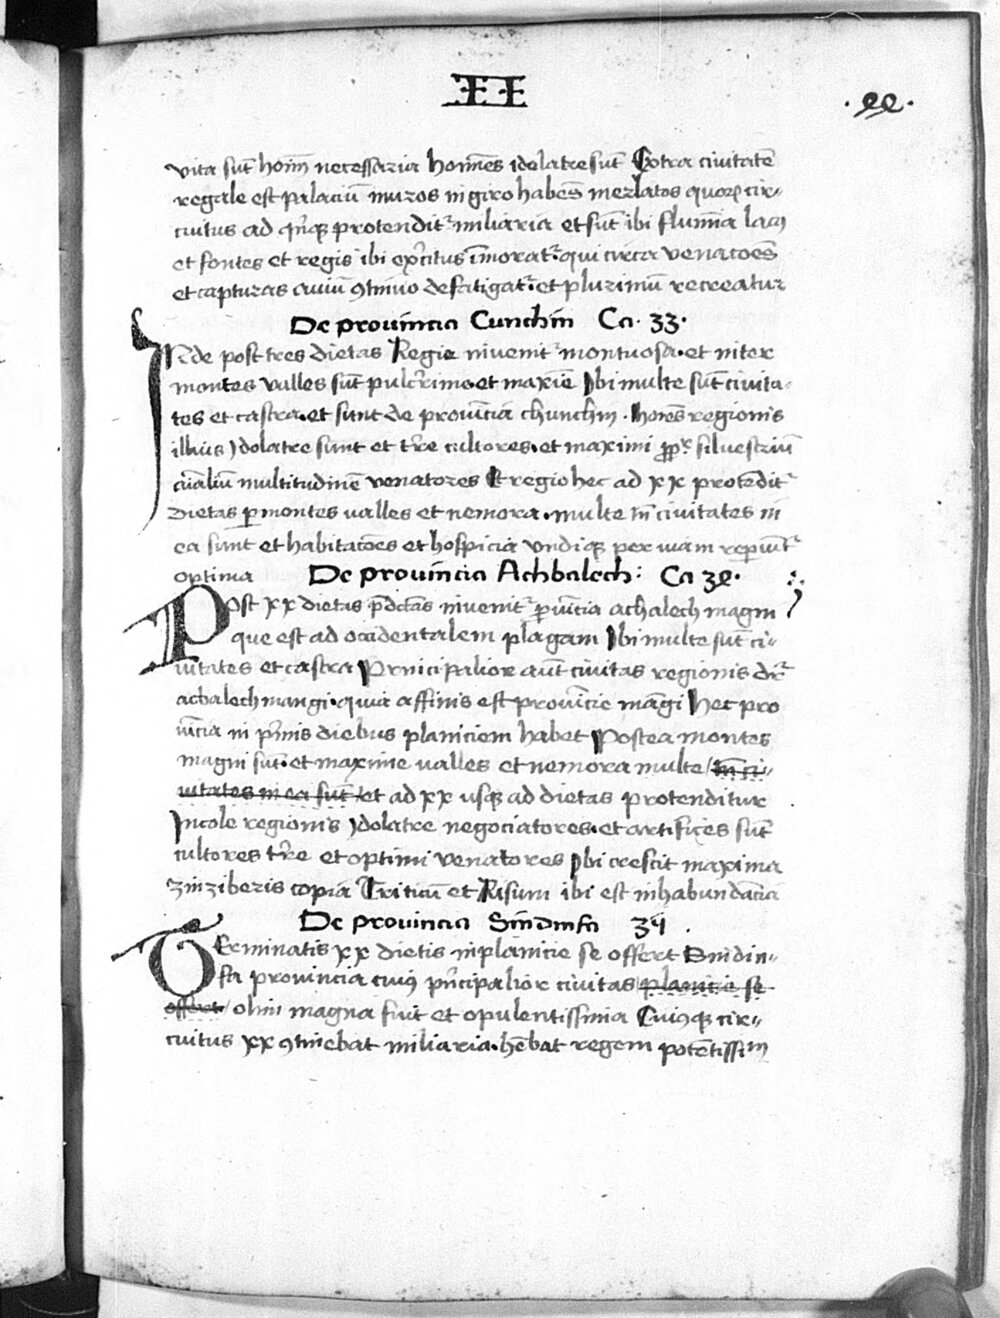 II
.ee.
vita sut̄ hoīm necessaria homēs idolatre sut̄ Extra civitatē
regale est palaciū muros in giro habēs merlatos quorꝫ cir-
cuitus ad qn̄qꝫ protendit᷑ miliaria et sut̄ ibi flumīa lacꝰ
et fontes et regis ibi exercitus īmorat᷑ qui circa venatōes
et capturas aviū ꝯtinuo defatigat᷑ et plurimū recreatur
De provincia Cunchin Ca. 33.
INde post tres dietas Regio invenit᷑ montuosa. et inter
montes valles sut̄ pulcrime. et maxīe Ibi multe sut̄ civita-
tes et castra. et sunt de provīcia chunchin. homēs regionis
illius Idolatre sunt et tr̄re cultores. et maximi silvestriū
multitudinē venatores Et regio hec ad xx protēdit᷑
dietas ꝑ montes valles et nemora. multe civitates in
ea sunt et habitatōes et hospicia undiqꝫ per viam reperiūt᷑
optima De provincia Achbalech: Ca 3e.
Post xx dietas p̄dc̄as invenit᷑ achalech magni
que est ad occidentalem plagam Ibi multe sut̄ ci-
vitates et castra Principalior aūt civitas regionis dr̄
acbalech mangi. quia affinis est provīcie māgi Hec pro
vīcia in p̄mis diebus planiciem habet Postea montes
magni sūt. et maxime valles et nemora multe / ci-
vitates in ea sūt / et ad xx usqꝫ ad dietas protenditur
Incole regionis Idolatre negociatores. et artifices sut̄
cultores tr̄re et optimi venatores Ibi crescit maxima
zinziberis copia Triticū et Risum ibi est in habundācia
De provincia Sindinfa 34.
TErminatis xx dietis in planicie se offert Sindin-
fa provincia cuiꝰ pn̄cipalior civitas / planicie se
offert / olim magna fuit et opulentissima Cuiusqꝫ cir-
cuitus xx ꝯtinebat miliaria. hēbat regem potētissim